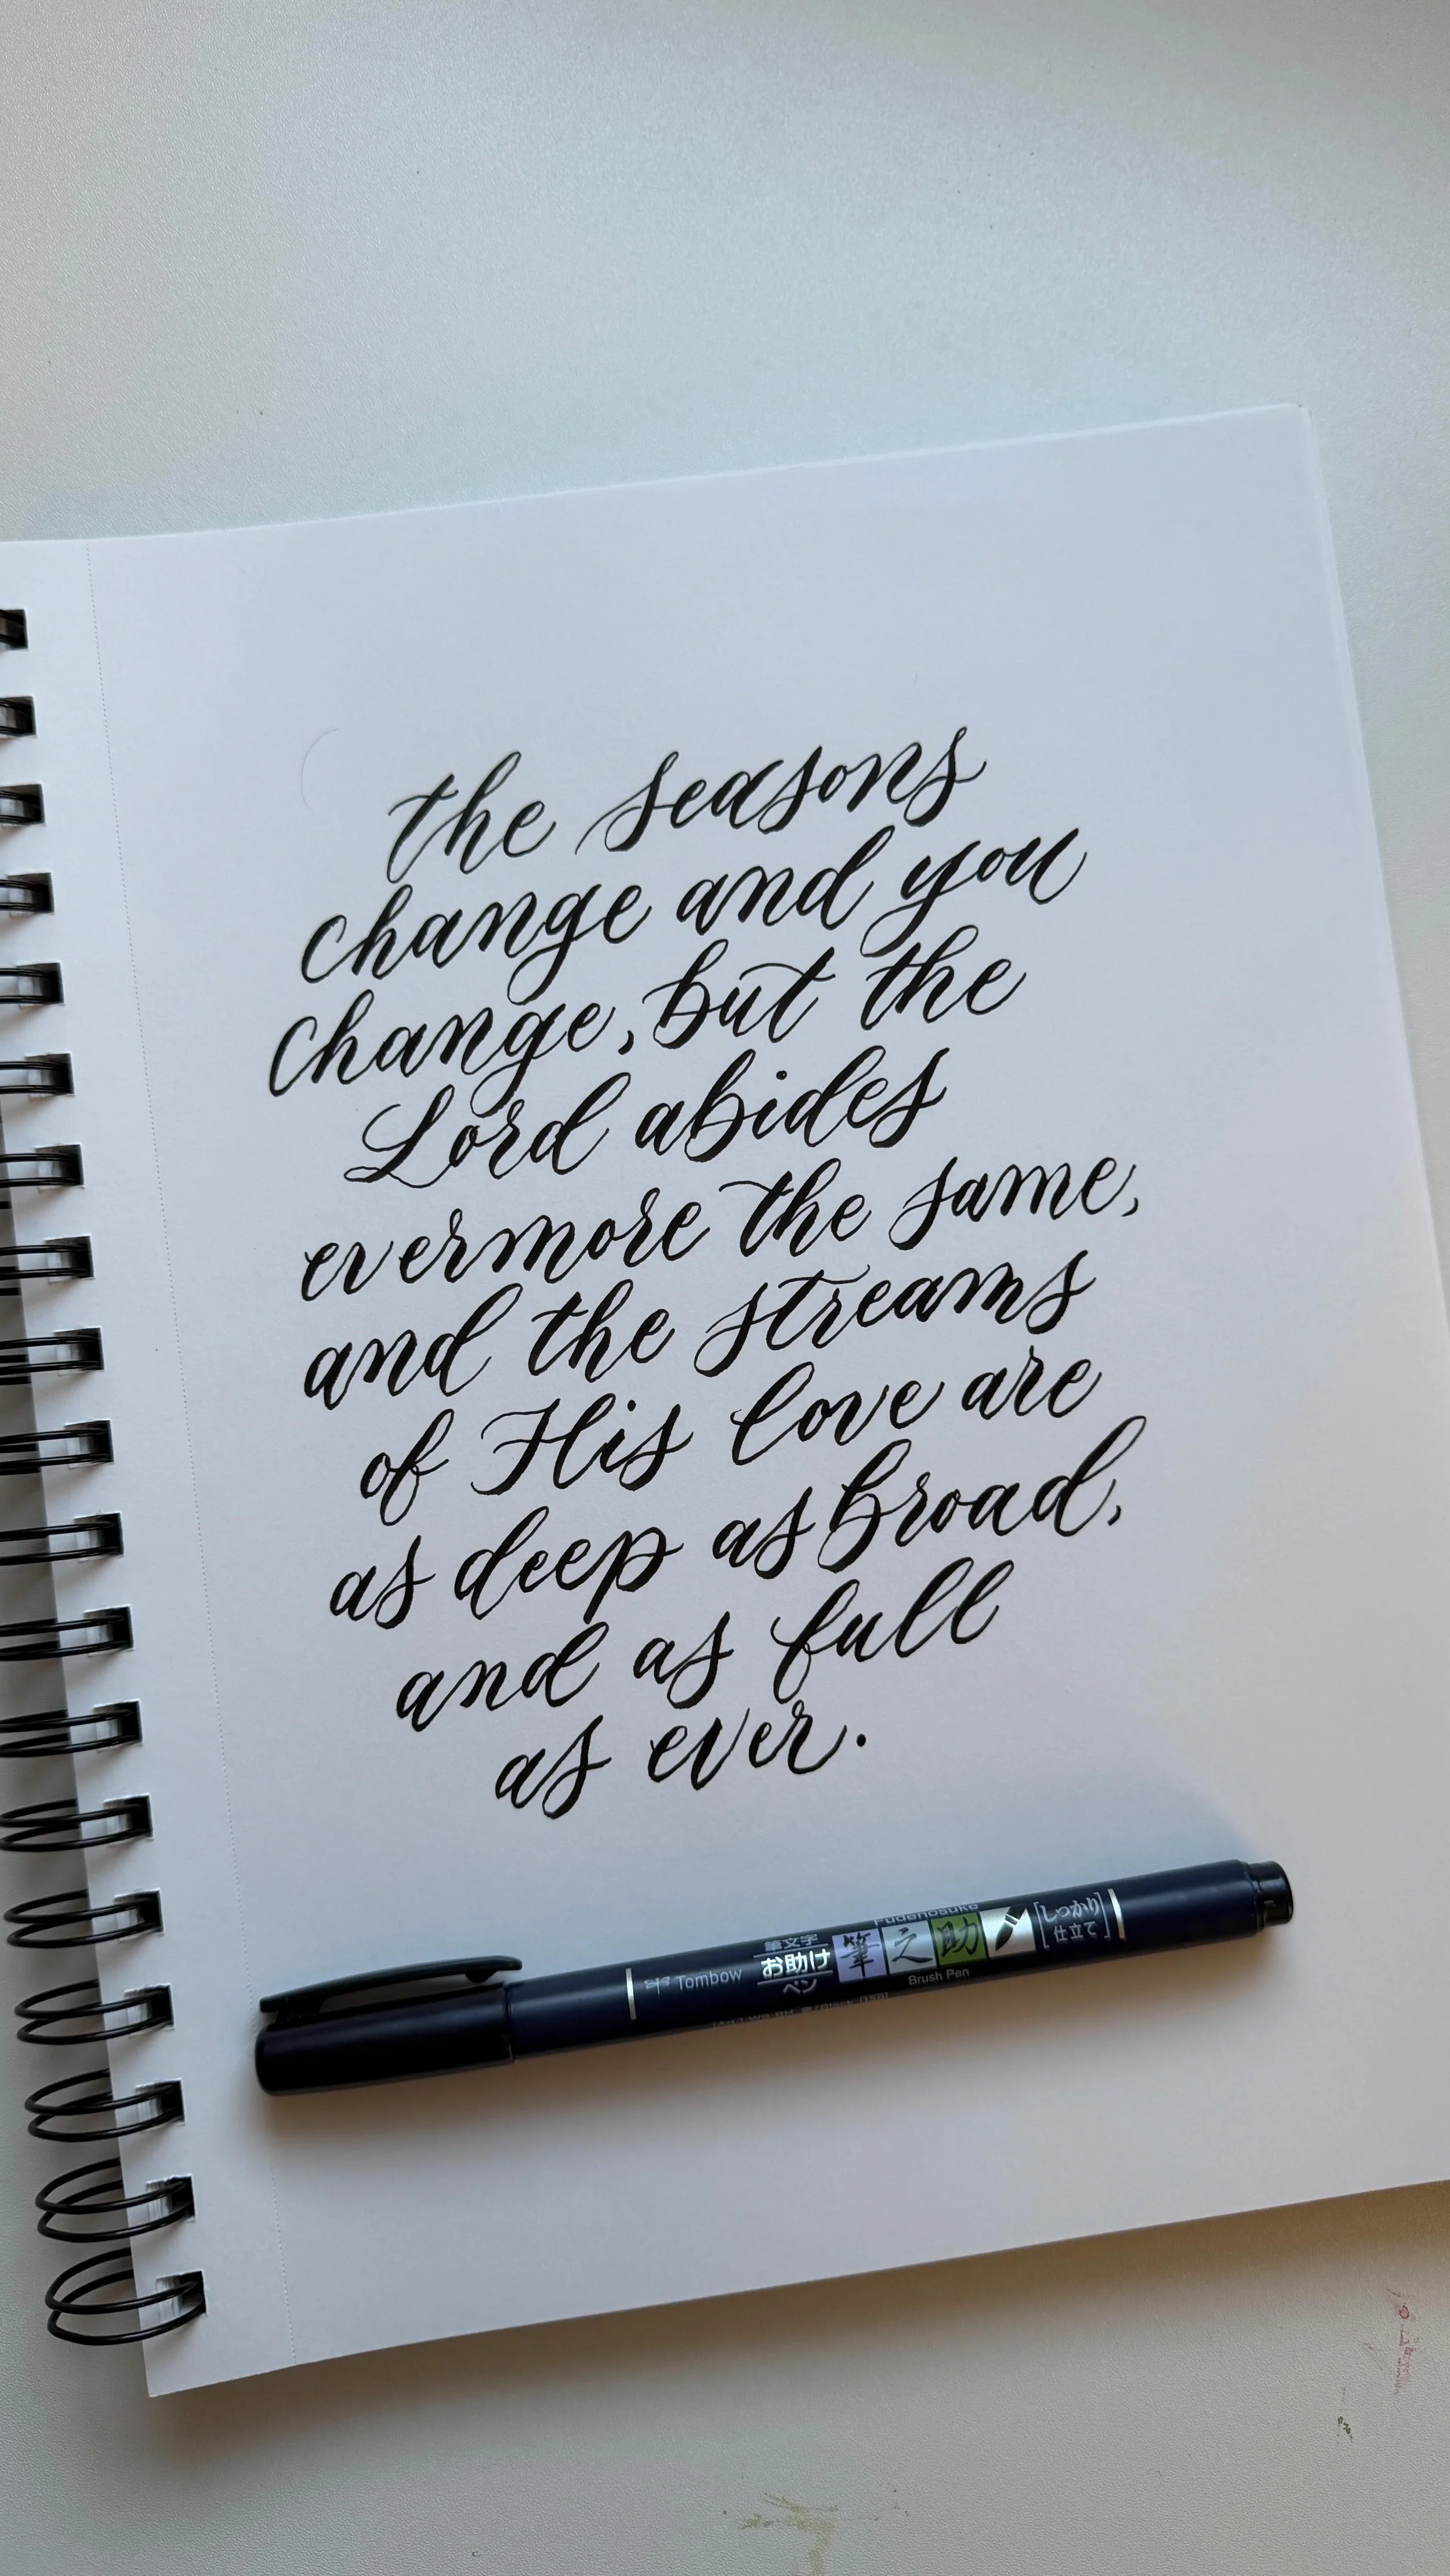 the seasons
change and you
change, but the
Lord abides
evermore the same,
and the streams
of His love are
as deep as broad,
and as full
as ever.
Tombow
筆文字
お助け
ペン
Fudenosuke
筆之助
Brush Pen
しっかり
仕立て